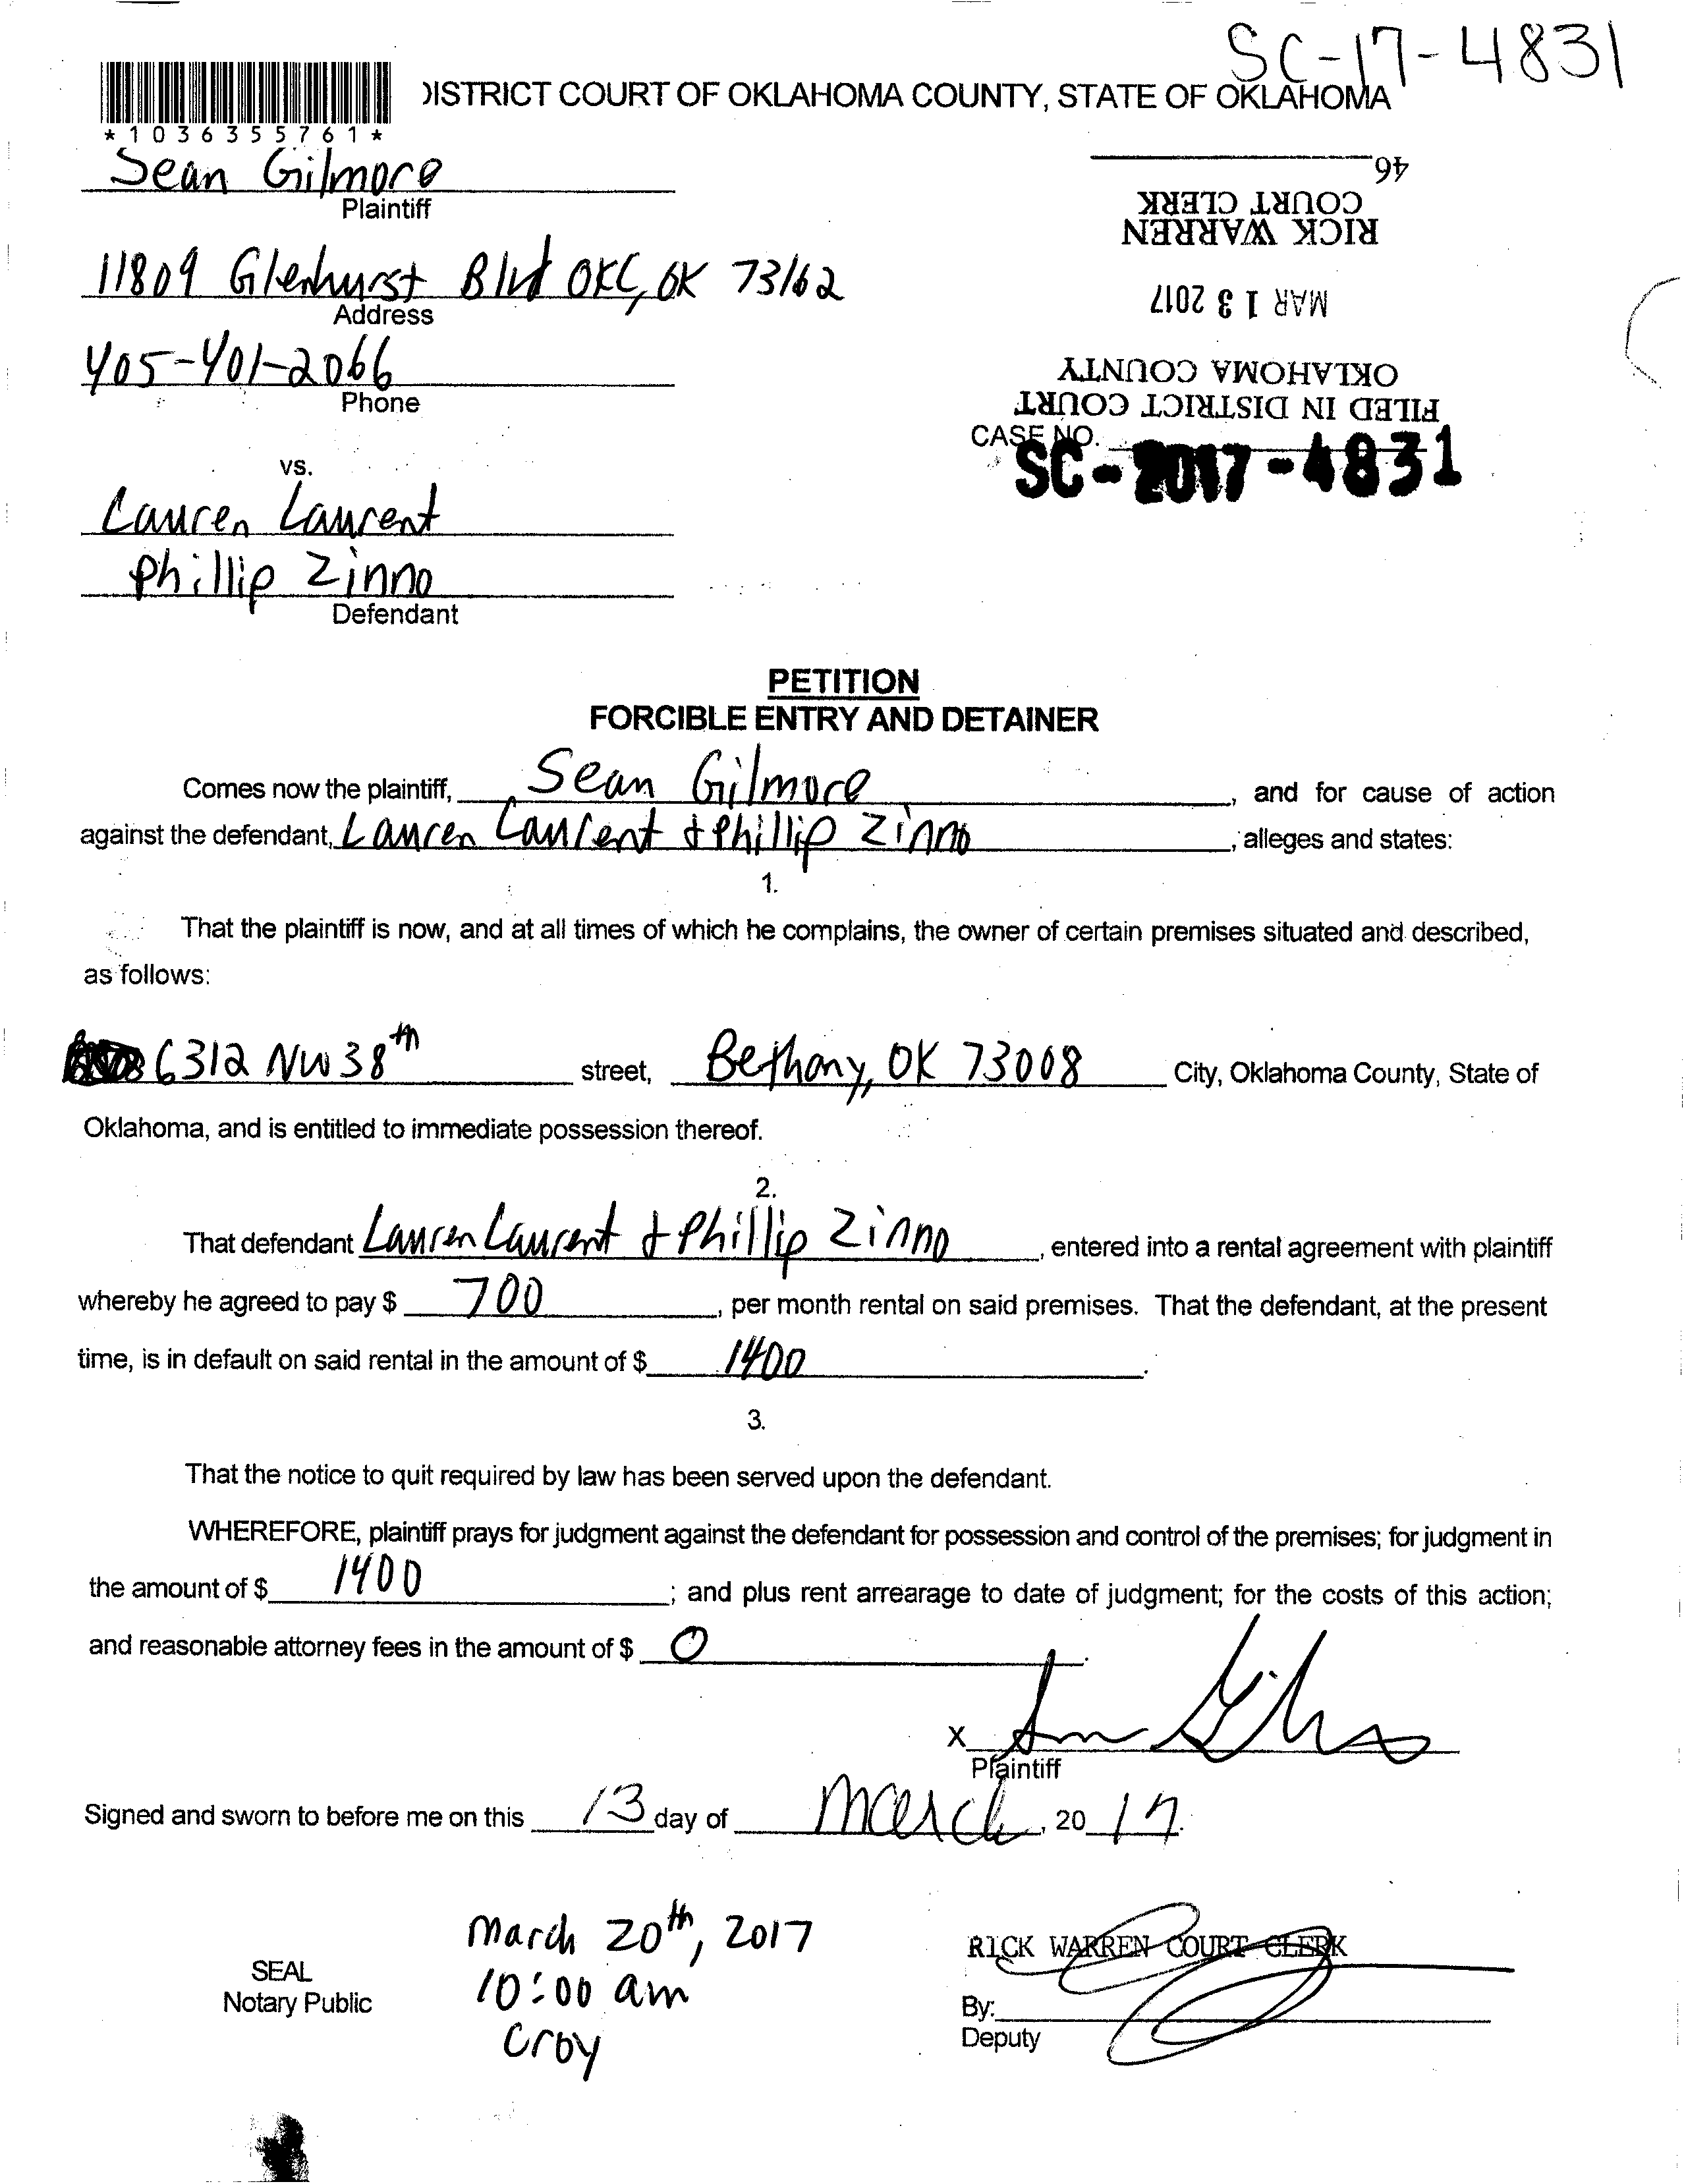 SC-17-4831
DISTRICT COURT OF OKLAHOMA COUNTY, STATE OF OKLAHOMA
*1036355761*
Sean Gilmore
Plaintiff
46
RICK WARREN
COURT CLERK
11809 Glenhurst Blvd OKC, OK 73162
Address
MAR 13 2017
405-401-2066
Phone
FILED IN DISTRICT COURT
OKLAHOMA COUNTY
CASE NO.
SC-2017-4831
vs.
Lauren Laurent
Phillip Zinno
Defendant
PETITION
FORCIBLE ENTRY AND DETAINER
Comes now the plaintiff, Sean Gilmore, and for cause of action
against the defendant, Lauren Laurent & Phillip Zinno, alleges and states:
1.
That the plaintiff is now, and at all times of which he complains, the owner of certain premises situated and described,
as follows:
6312 NW 38th street, Bethany, OK 73008 City, Oklahoma County, State of
Oklahoma, and is entitled to immediate possession thereof.
2.
That defendant Lauren Laurent & Phillip Zinno, entered into a rental agreement with plaintiff
whereby he agreed to pay $ 700, per month rental on said premises. That the defendant, at the present
time, is in default on said rental in the amount of $ 1400.
3.
That the notice to quit required by law has been served upon the defendant.
WHEREFORE, plaintiff prays for judgment against the defendant for possession and control of the premises; for judgment in
the amount of $ 1400; and plus rent arrearage to date of judgment; for the costs of this action;
and reasonable attorney fees in the amount of $ 0.
X
Plaintiff
Signed and sworn to before me on this 13 day of March, 2017.
March 20th, 2017
10:00 am
Croy
SEAL
Notary Public
RICK WARREN COURT CLERK
By:
Deputy